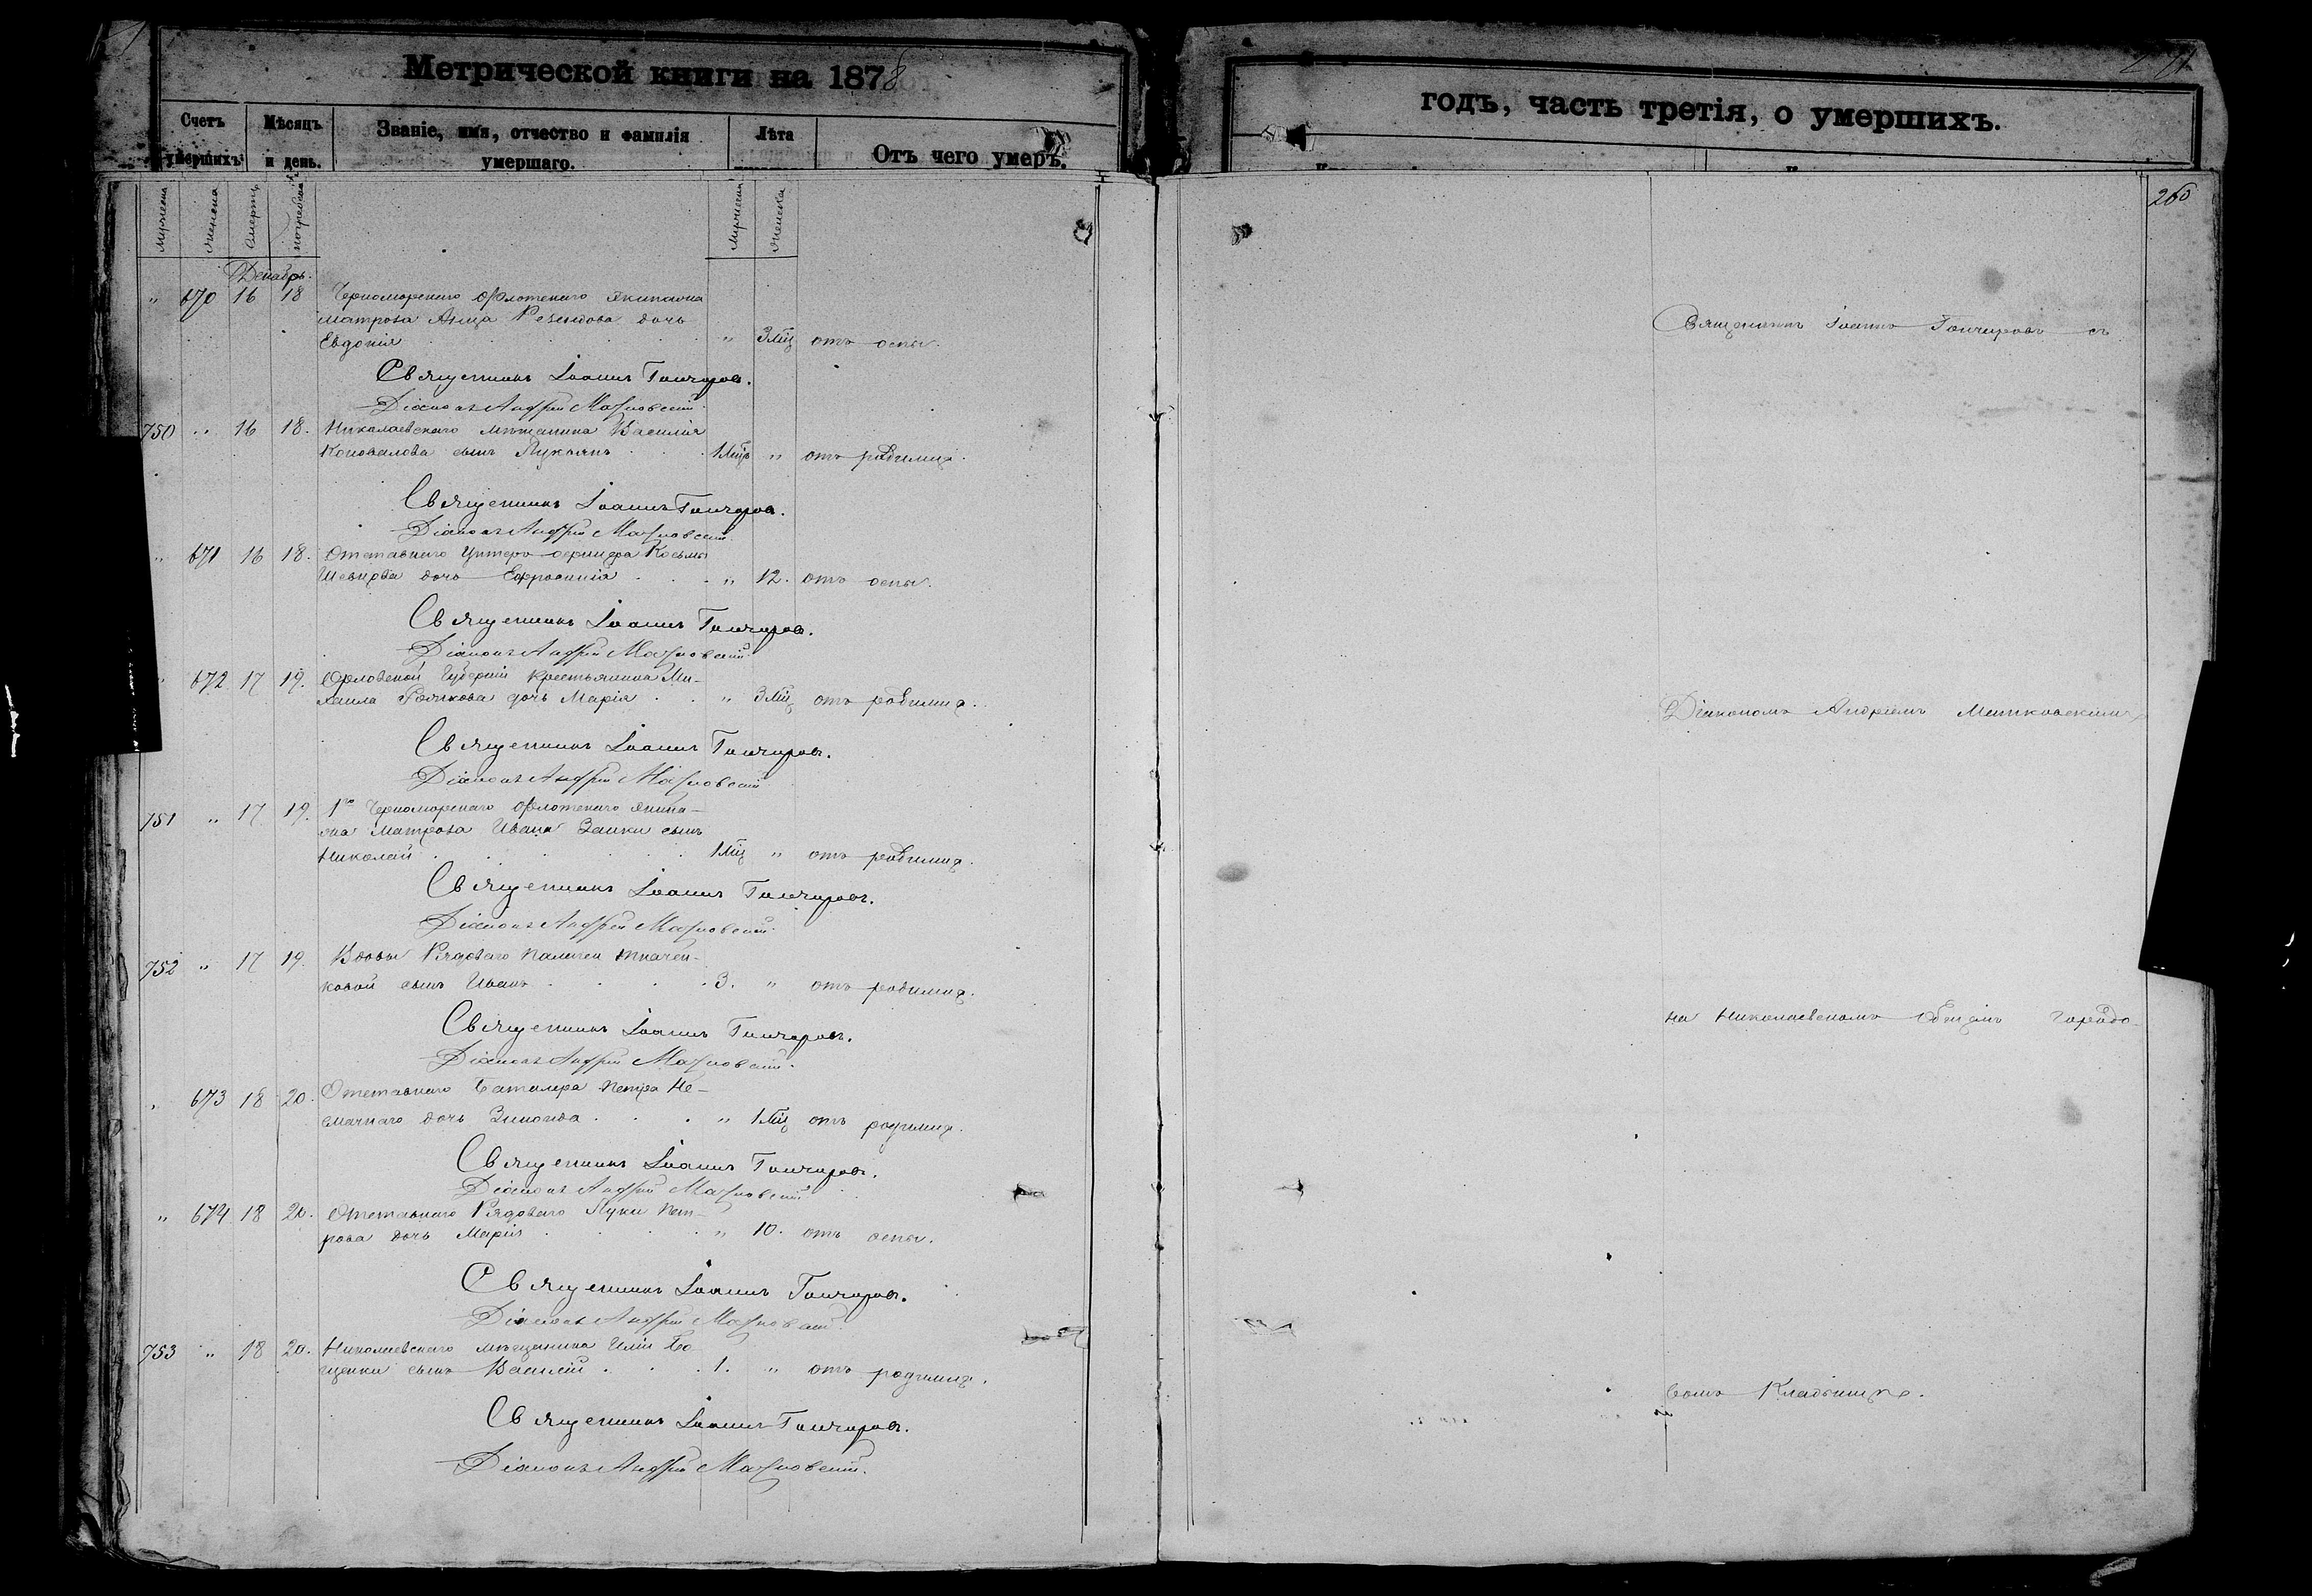 Метрической книги на 1878
Счетъ умершихъ.
Мѣсяцъ и день.
Званіе, имя, отчество и фамилія умершаго.
Лѣта
Отъ чего умеръ.
мужеска
женска
смерти
погребенія
мужеска
женска
Декабрь.
" 670 16 18 Черноморскаго Флотскаго экипажа
матроса дочь
Евдокія " 3 мц отъ оспы.
Священникъ Іоаннъ Гончаровъ.
Діаконъ Андрей
750 " 16 18. Николаевскаго мѣщанина Василія
Коновалова сынъ Лукьянъ 1 мць " отъ родимца.
Священникъ Іоаннъ Гончаровъ.
Діаконъ Андрей
" 671 16 18. Отставнаго Унтеръ-офицера Косьмы
Шевцова дочь Евфросинія " 12. отъ оспы.
Священникъ Іоаннъ Гончаровъ.
Діаконъ Андрей
" 672 17 19. Орловской Губерніи крестьянина Ми-
хаила дочь Марія " 3 мц отъ родимца.
Священникъ Іоаннъ Гончаровъ.
Діаконъ Андрей
751 " 17 19. 1го Черноморскаго Флотскаго экипа-
жа матроса Ивана Заики сынъ
Николай 1 мц " отъ родимца.
Священникъ Іоаннъ Гончаровъ.
Діаконъ Андрей
752 " 17 19. Вдовы Рядоваго Ткачен-
ковой сынъ Иванъ 3. " отъ родимца.
Священникъ Іоаннъ Гончаровъ.
Діаконъ Андрей
" 673 18 20. Отставнаго Баталера Петра Не-
дочь 1 мц отъ родимца.
Священникъ Іоаннъ Гончаровъ.
Діаконъ Андрей
" 674 18 20. Отставнаго Рядоваго Луки Пет-
рова дочь Марія " 10. отъ оспы.
Священникъ Іоаннъ Гончаровъ.
Діаконъ Андрей
753 " 18 20. Николаевскаго мѣщанина Иліи
сынъ Василій 1. " отъ родимца.
Священникъ Іоаннъ Гончаровъ.
Діаконъ Андрей
годъ, часть третія, о умершихъ.
260
Священникъ Іоаннъ Гончаровъ съ
Діакономъ Андреемъ
на Николаевскомъ Общемъ Городс-
комъ Кладбищѣ.